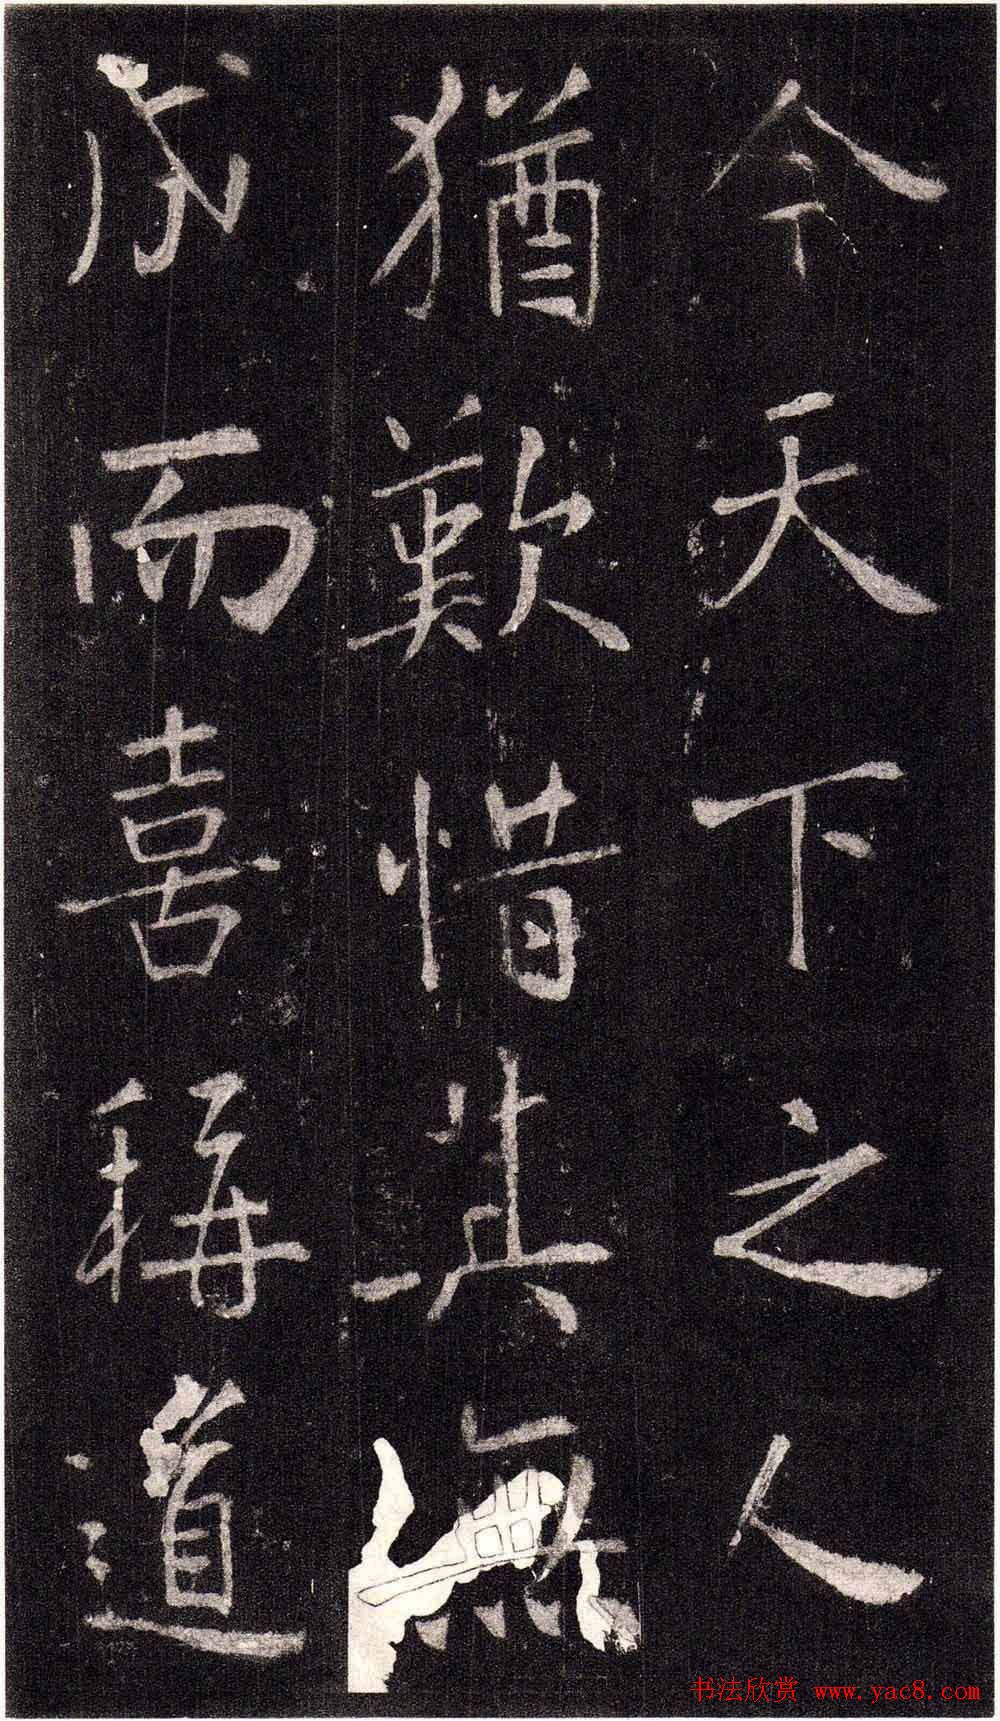 今天下之人
猶歎惜其無
成而喜稱道
书法欣赏 www.yac8.com